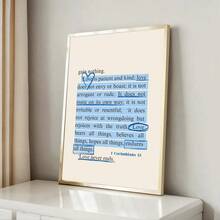 gain nothing.
Love is patient and kind; love
does not envy or boast; it is not
arrogant or rude. It does not
insist on its own way; it is not
irritable or resentful, it does
not rejoice at wrongdoing but
rejoices with the truth. Love
bears all things, believes all
things, hopes all things, endures
all things.
1 Corinthians 13
Love never ends.